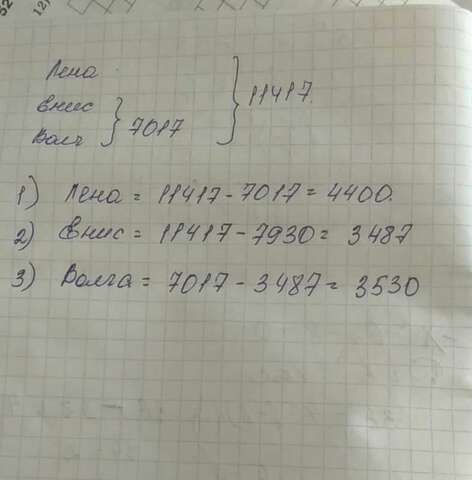 Лена
Енис } 7017 } 11417.
Волг
1) Лена = 11417 - 7017 = 4400.
2) Енис = 11417 - 7930 = 3487
3) Волга = 7017 - 3487 = 3530